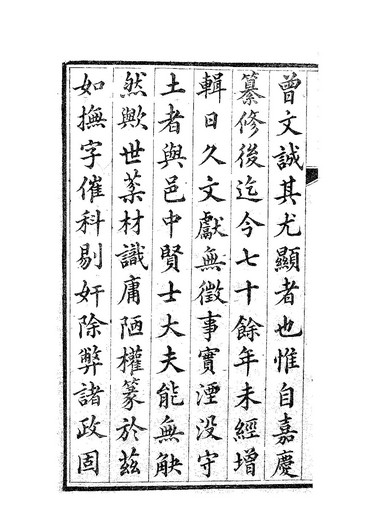 曾文誠其尤顯者也惟自嘉慶
纂修後迄今七十餘年未經增
輯日久文獻無徵事實湮没守
土者與邑中賢士大夫能無觖
然歟世葇材識庸陋權篆於茲
如撫字催科剔奸除弊諸政固